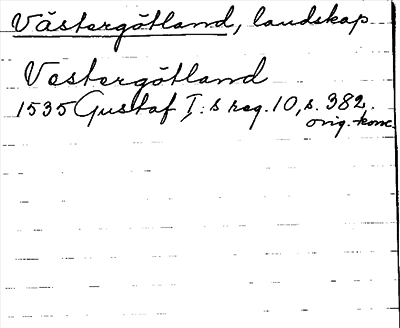 Västergötland, landskap
Vestergötland
1535 Gustaf I:s reg. 10, s. 382.
orig. konc.